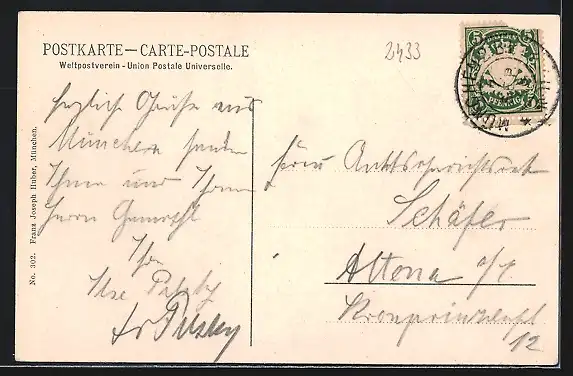 POSTKARTE — CARTE-POSTALE
Weltpostverein - Union Postale Universelle.
2433
5 BAYERN 5
5 PFENNIG 5
herzliche Grüße aus
München senden
Ihnen und Ihrem
Herrn Gemahl
Ihre
Ilse
Frau Amtsgerichtsrat
Schäfer
Altona a/E.
Kronprinzenstr
12
No. 302. Franz Joseph Huber, München.